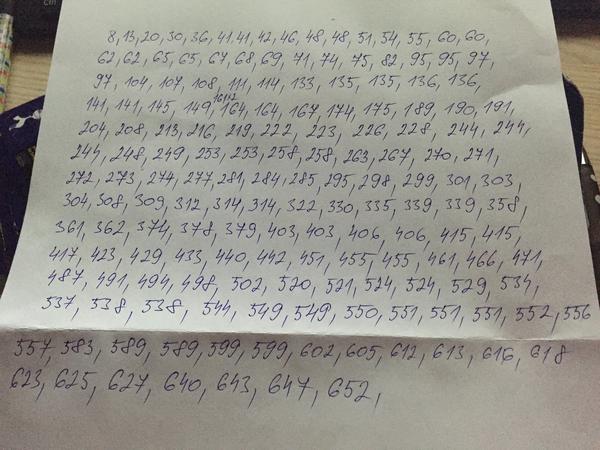 8, 13, 20, 30, 36, 41, 41, 42, 46, 48, 48, 51, 54, 55, 60, 60,
62, 62, 65, 65, 67, 68, 69, 71, 74, 75, 82, 95, 95, 97,
97, 104, 107, 108, 111, 114, 133, 135, 135, 136, 136,
141, 141, 145, 149, 164, 164, 167, 174, 175, 189, 190, 191,
204, 208, 213, 216, 219, 222, 223, 226, 228, 244, 244,
244, 248, 249, 253, 253, 258, 258, 263, 267, 270, 271,
272, 273, 274, 277, 281, 284, 285, 295, 298, 299, 301, 303,
304, 308, 309, 312, 314, 314, 322, 330, 335, 339, 339, 358,
361, 362, 374, 378, 379, 403, 403, 406, 406, 415, 415,
417, 423, 429, 433, 440, 442, 451, 455, 455, 461, 466, 471,
487, 491, 494, 498, 502, 520, 521, 524, 524, 529, 534,
537, 538, 538, 544, 549, 549, 550, 551, 551, 551, 552, 556
557, 583, 589, 589, 599, 599, 602, 605, 612, 613, 616, 618
623, 625, 627, 640, 643, 647, 652,